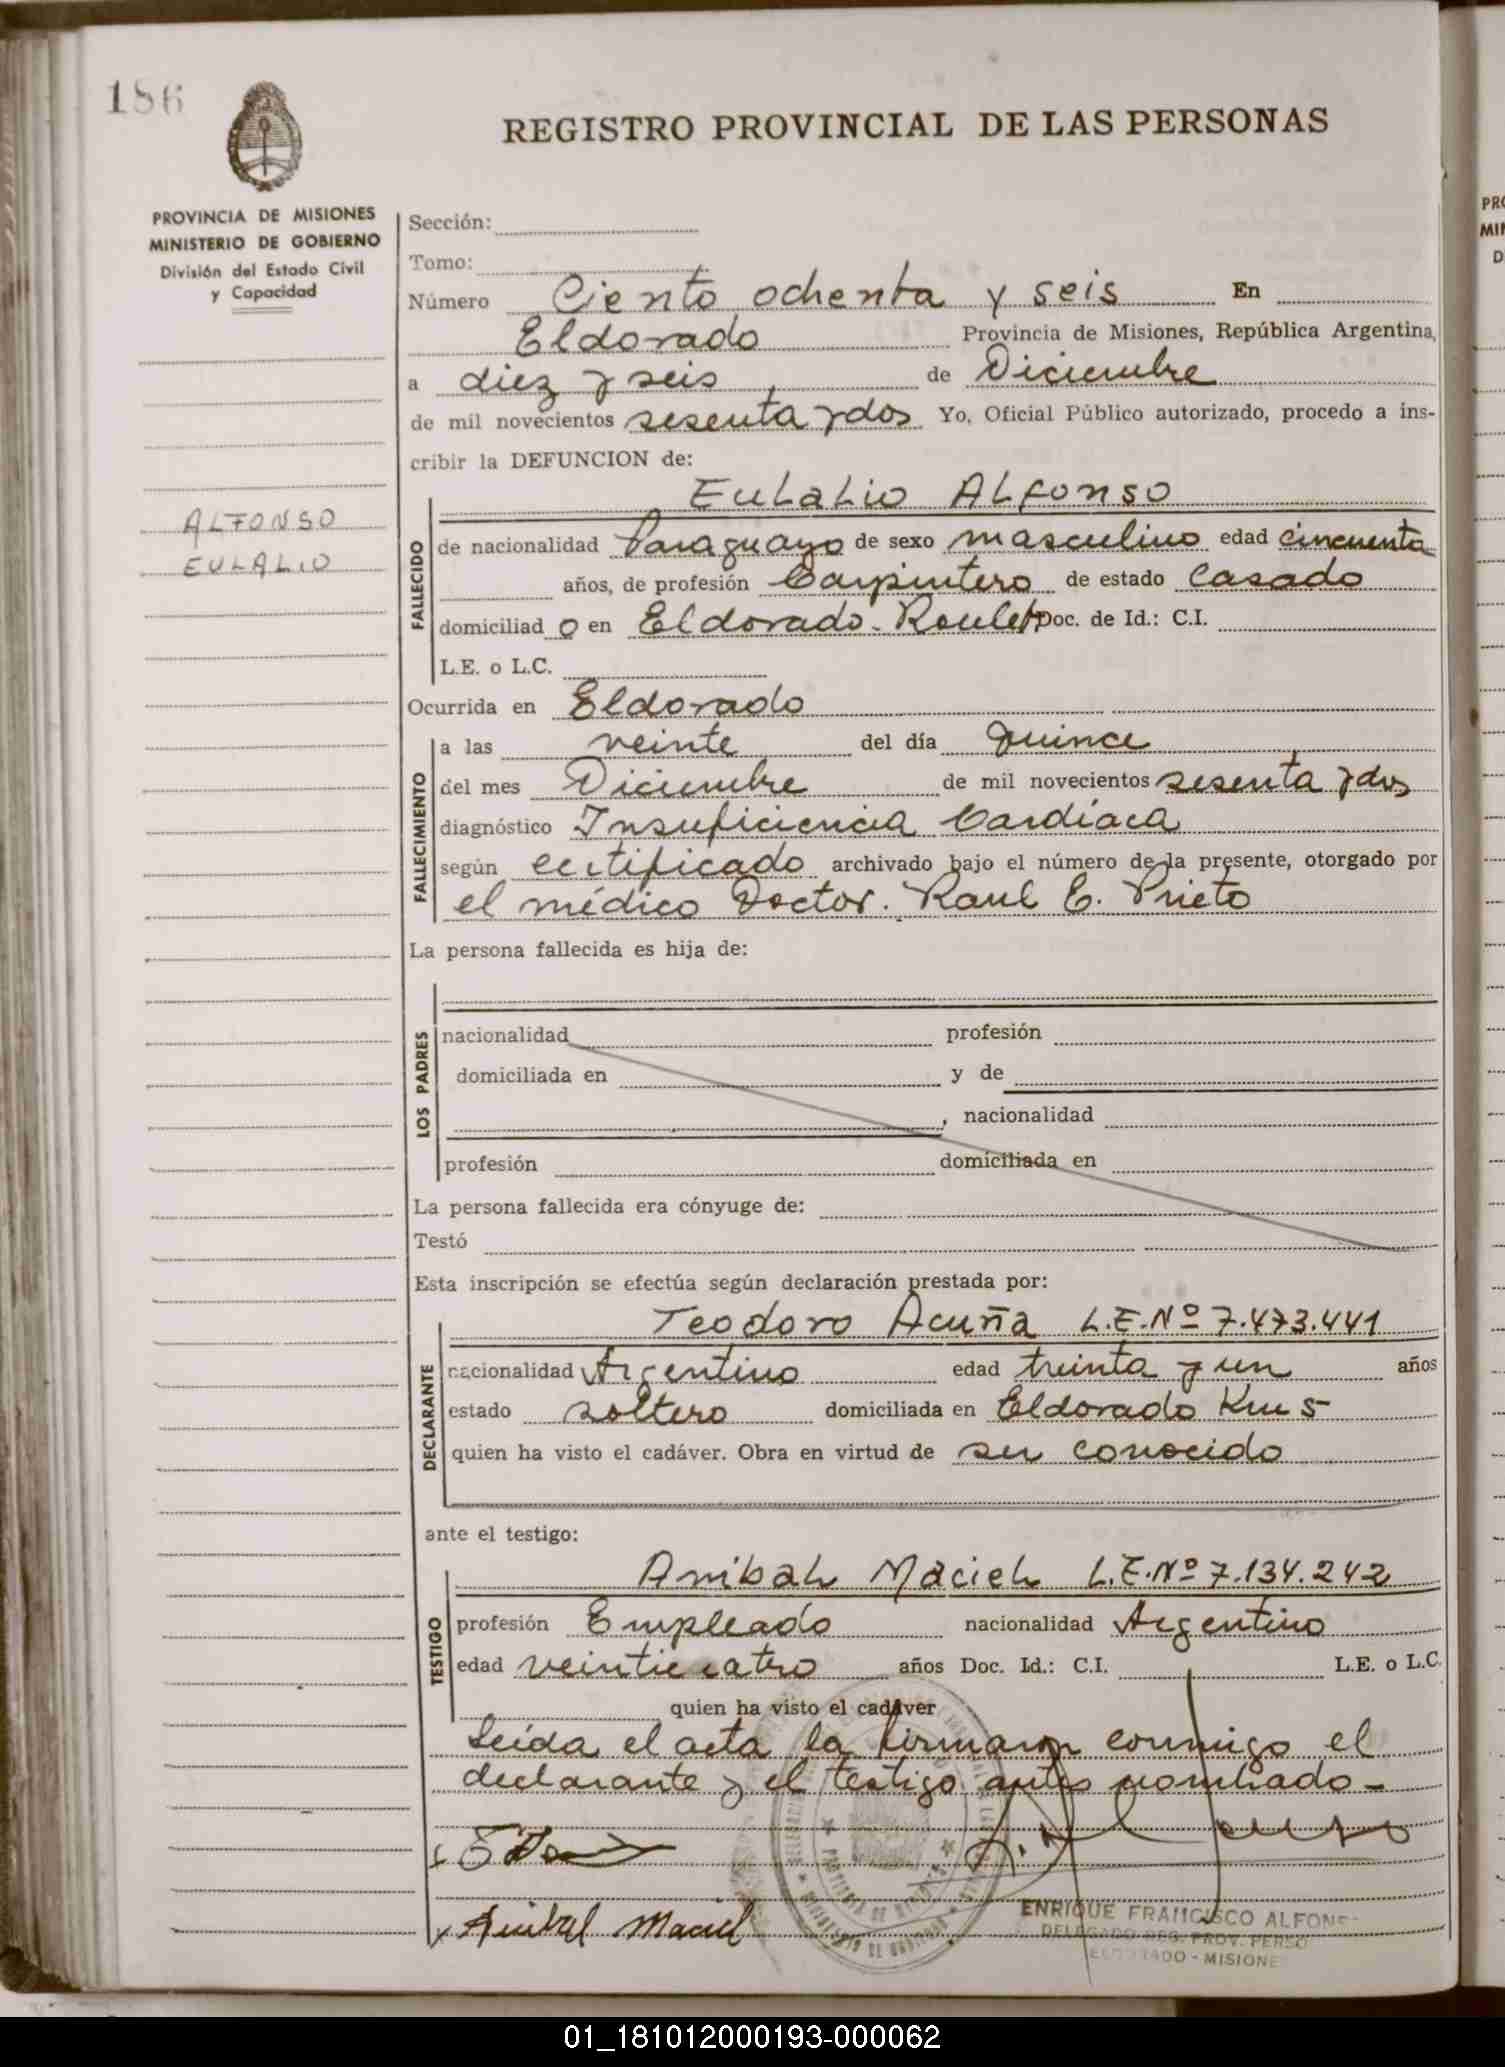 186
REGISTRO PROVINCIAL DE LAS PERSONAS
PROVINCIA DE MISIONES
MINISTERIO DE GOBIERNO
División del Estado Civil
y Capacidad
ALFONSO
EULALIO
Sección:
Tomo:
Número Ciento ochenta y seis En
Eldorado Provincia de Misiones, República Argentina,
a diez y seis de Diciembre
de mil novecientos sesenta y dos Yo, Oficial Público autorizado, procedo a ins-
cribir la DEFUNCION de:
EULALIO ALFONSO
FALLECIDO
de nacionalidad Paraguayo de sexo masculino edad cincuenta
años, de profesión Carpintero de estado Casado
domiciliad o en Eldorado - Roulet Doc. de Id.: C.I.
L.E. o L.C.
Ocurrida en Eldorado
FALLECIMIENTO
a las veinte del día Quince
del mes Diciembre de mil novecientos sesenta y dos
diagnóstico Insuficiencia Cardíaca
según certificado archivado bajo el número de la presente, otorgado por
el médico Doctor. Raul E. Prieto
La persona fallecida es hija de:
LOS PADRES
nacionalidad profesión
domiciliada en y de
, nacionalidad
profesión domiciliada en
La persona fallecida era cónyuge de:
Testó
Esta inscripción se efectúa según declaración prestada por:
DECLARANTE
Teodoro Acuña L.E.Nº 7.473.441
nacionalidad Argentino edad treinta y un años
estado soltero domiciliada en Eldorado Km 5
quien ha visto el cadáver. Obra en virtud de ser conocido
ante el testigo:
TESTIGO
Anibal Maciel L.E.Nº 7.134.242
profesión Empleado nacionalidad Argentino
edad veinticuatro años Doc. Id.: C.I. L.E. o L.C.
quien ha visto el cadáver
Leída el acta la firmaron conmigo el
declarante y el testigo antes nombrado -
Anibal Maciel
ENRIQUE FRANCISCO ALFONS
DELEGADO REG. PROV. PERSO
ELDORADO - MISIONE
01_181012000193-000062